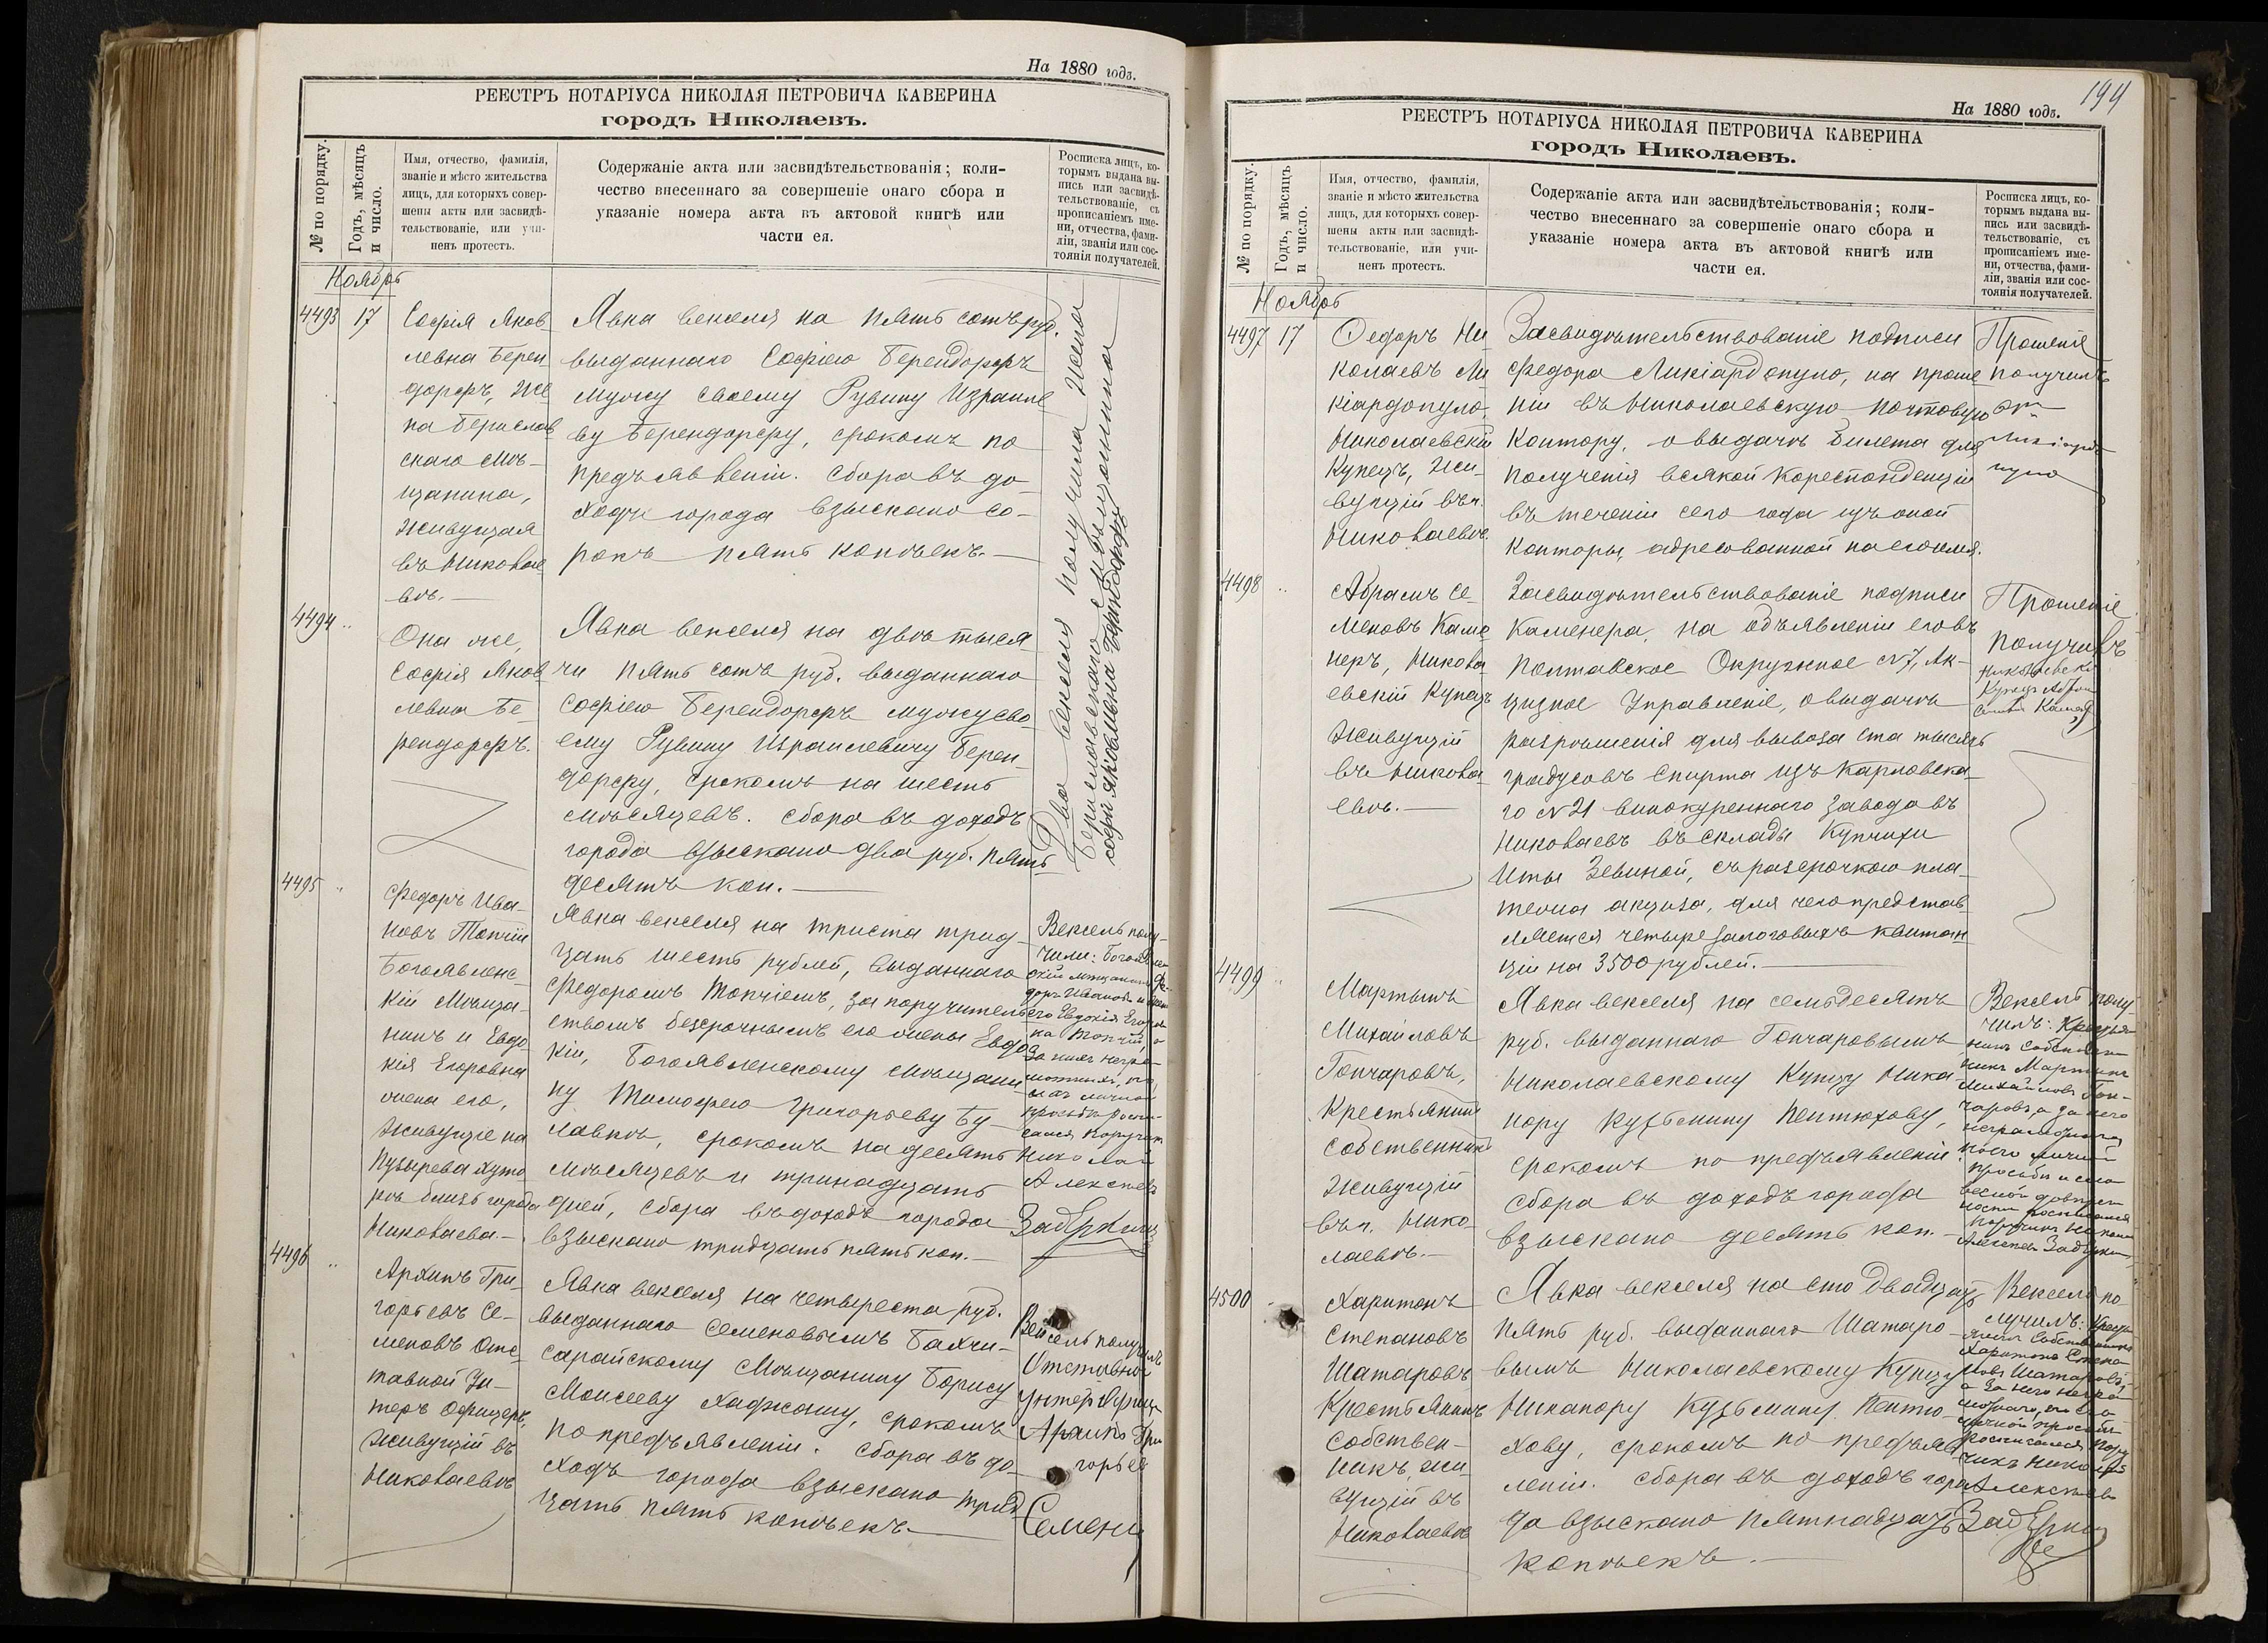 На 1880 годъ.
РЕЕСТРЪ НОТАРІУСА НИКОЛАЯ ПЕТРОВИЧА КАВЕРИНА
городъ Николаевъ.
№ по порядку.
Годъ, мѣсяцъ
и число.
Имя, отчество, фамилія,
званіе и мѣсто жительства
лицъ, для которыхъ совер-
шены акты или засвидѣ-
тельствованіе, или учи-
ненъ протестъ.
Содержаніе акта или засвидѣтельствованія; коли-
чество внесеннаго за совершеніе онаго сбора и
указаніе номера акта въ актовой книгѣ или
части ея.
Росписка лицъ, ко-
торымъ выдана вы-
пись или засвидѣ-
тельствованіе, съ
прописаніемъ име-
ни, отчества, фами-
ліи, званія или сос-
тоянія получателей.
Ноябрь
4493
17
Софія Яков
левна Берен
дорфъ, Же
на Берислав
скаго Мѣ-
щанина,
Живущая
въ Николае
вѣ.
Явка векселя на пять сотъ руб.
выданнаго Софіею Берендорфъ
мужу своему Рувину Израиле
ву Берендорфу, срокомъ по
предъявленіи. Сбора въ до-
ходъ города взыскано со-
рокъ пять копѣекъ.
4494 "
Она же,
Софія Яков
левна Бе-
рендорфъ.
Явка векселя на двѣ тыся
чи пять сотъ руб. выданнаго
Софіею Берендорфъ мужу сво-
ему Рувину Израилевичу Берен-
дорфу, срокомъ на шесть
мѣсяцевъ. Сбора въ доходъ
города взыскано два руб. пять
десятъ коп.
Два векселя получила жена
Бериславскаго мѣщанина
софiя яковлевна Берендорфъ
4495 "
Федоръ Ива-
новъ Топчій
Богоявленс-
кій Мѣща-
нинъ и Евдо
кія Егоровна
жена его,
Живущіе на
Пузырева хуто
рѣ близь города
Николаева.
Явка векселя на триста трид-
цать шесть рублей, выданнаго
Федоромъ Топчіемъ, за поручитель
ствомъ безсрочнымъ его жены Евдо
кіи, Богоявленскому мѣщани
ну Тимофею Григорьеву Бу-
лавкѣ, срокомъ на десять
мѣсяцевъ и тринадцать
дней, сбора въ доходъ города
взыскано тридцать пять коп.
Вексель полу-
чили: Богоявлен
скій мѣщанинъ Фе-
доръ Ивановъ и жена
его Евдокія Егоров
на Топчій, а
за нихъ негра-
мотныхъ, по
ихъ личной
просьбѣ роспи-
сался Поручикъ
Николай
Алексѣевъ
Задеркинъ
4496 "
Архипъ Гри-
горьевъ Се-
меновъ Отс-
тавной Ун-
теръ Офицеръ,
Живущій въ
Николаевѣ
Явка векселя на четыреста руб.
выданнаго Семеновымъ Бахчи-
сарайскому Мѣщанину Борису
Моисееву Хаджашу, срокомъ
по предъявленіи. Сбора въ до-
ходъ города взыскано трид
цать пять копѣекъ.
Вексель получилъ
Отставной
унтеръ Офицеръ
Архипъ Гри
горьев
Семенъ
194
На 1880 годъ.
РЕЕСТРЪ НОТАРІУСА НИКОЛАЯ ПЕТРОВИЧА КАВЕРИНА
городъ Николаевъ.
№ по порядку.
Годъ, мѣсяцъ
и число.
Имя, отчество, фамилія,
званіе и мѣсто жительства
лицъ, для которыхъ совер-
шены акты или засвидѣ-
тельствованіе, или учи-
ненъ протестъ.
Содержаніе акта или засвидѣтельствованія; коли-
чество внесеннаго за совершеніе онаго сбора и
указаніе номера акта въ актовой книгѣ или
части ея.
Росписка лицъ, ко-
торымъ выдана вы-
пись или засвидѣ-
тельствованіе, съ
прописаніемъ име-
ни, отчества, фами-
ліи, званія или сос-
тоянія получателей.
Ноябрь
4497
17
Федоръ Ни
колаевъ Ли
кіардопуло,
Николаевскій
Купецъ, Жи-
вущій въ г.
Николаевѣ.
Засвидѣтельствованіе подписи
Федора Ликіардопуло, на проше
ніи въ Николаевскую почтовую
Контору, о выдачѣ билета для
полученія всякой Кореспонденціи
въ теченіи сего года изъ оной
Конторы, адресованной на его имя.
Прошеніе
получилъ
4498 "
Абрамъ Се-
меновъ Каме
неръ, Никола
евскій Купецъ
Живущій
въ Никола-
евѣ.
Засвидѣтельствованіе подписи
Каменера, на объявленіи его въ
Полтавское Окружное №7, Ак-
цизное Управленіе, о выдачѣ
разрѣшенія для вывоза ста тысячъ
градусовъ спирта изъ Карловска-
го №21 винокуреннаго завода въ
Николаевъ въ склады Купчихи
Иты Зевиной, съ разсрочкою пла-
тежа акциза, для чего представ
ляется четыре залоговыхъ квитан
ціи на 3500 рублей.
Прошеніе
получилъ
Николаевскій
Купецъ Абрам
4499 "
Мартынъ
Михайловъ
Гончаровъ,
Крестьянинъ
собственникъ
Живущій
въ г. Нико-
лаевѣ.
Явка векселя на семьдесятъ
руб. выданнаго Гончаровымъ
Николаевскому Купцу Ника-
нору Кузьмину Пентюхову,
срокомъ по предъявленіи
сбора въ доходъ города
взыскано десять коп.
Вексель полу-
чилъ: Крестья-
нинъ собствен
никъ Мартынъ
Михайловъ Гон-
чаровъ, а за него
неграмотна
го его личной
просьбѣ и сло-
весной довѣрен
ности росписался
Поручикъ Николай
Алексѣевъ Задеркинъ
4500 "
Харитонъ
Степановъ
Шатаровъ
Крестьянинъ
Собствен-
никъ, жи-
вущій въ
Николаевѣ
Явка векселя на сто двадцать
пять руб. выданнаго Шатаро-
вымъ Николаевскому Купцу
Никанору Кузьмину Пентю-
хову, срокомъ по предъяв
леніи. Сбора въ доходъ горо
да взыскано пятнадцать
копѣекъ.
Вексель по
лучилъ: Кресть
янинъ Собственникъ
Харитонъ Степа
новъ Шатаровъ,
а за него негра
мотнаго, по его
личной просьбѣ
росписался Пору
чикъ Николай
Алексѣевъ
Задеркинъ